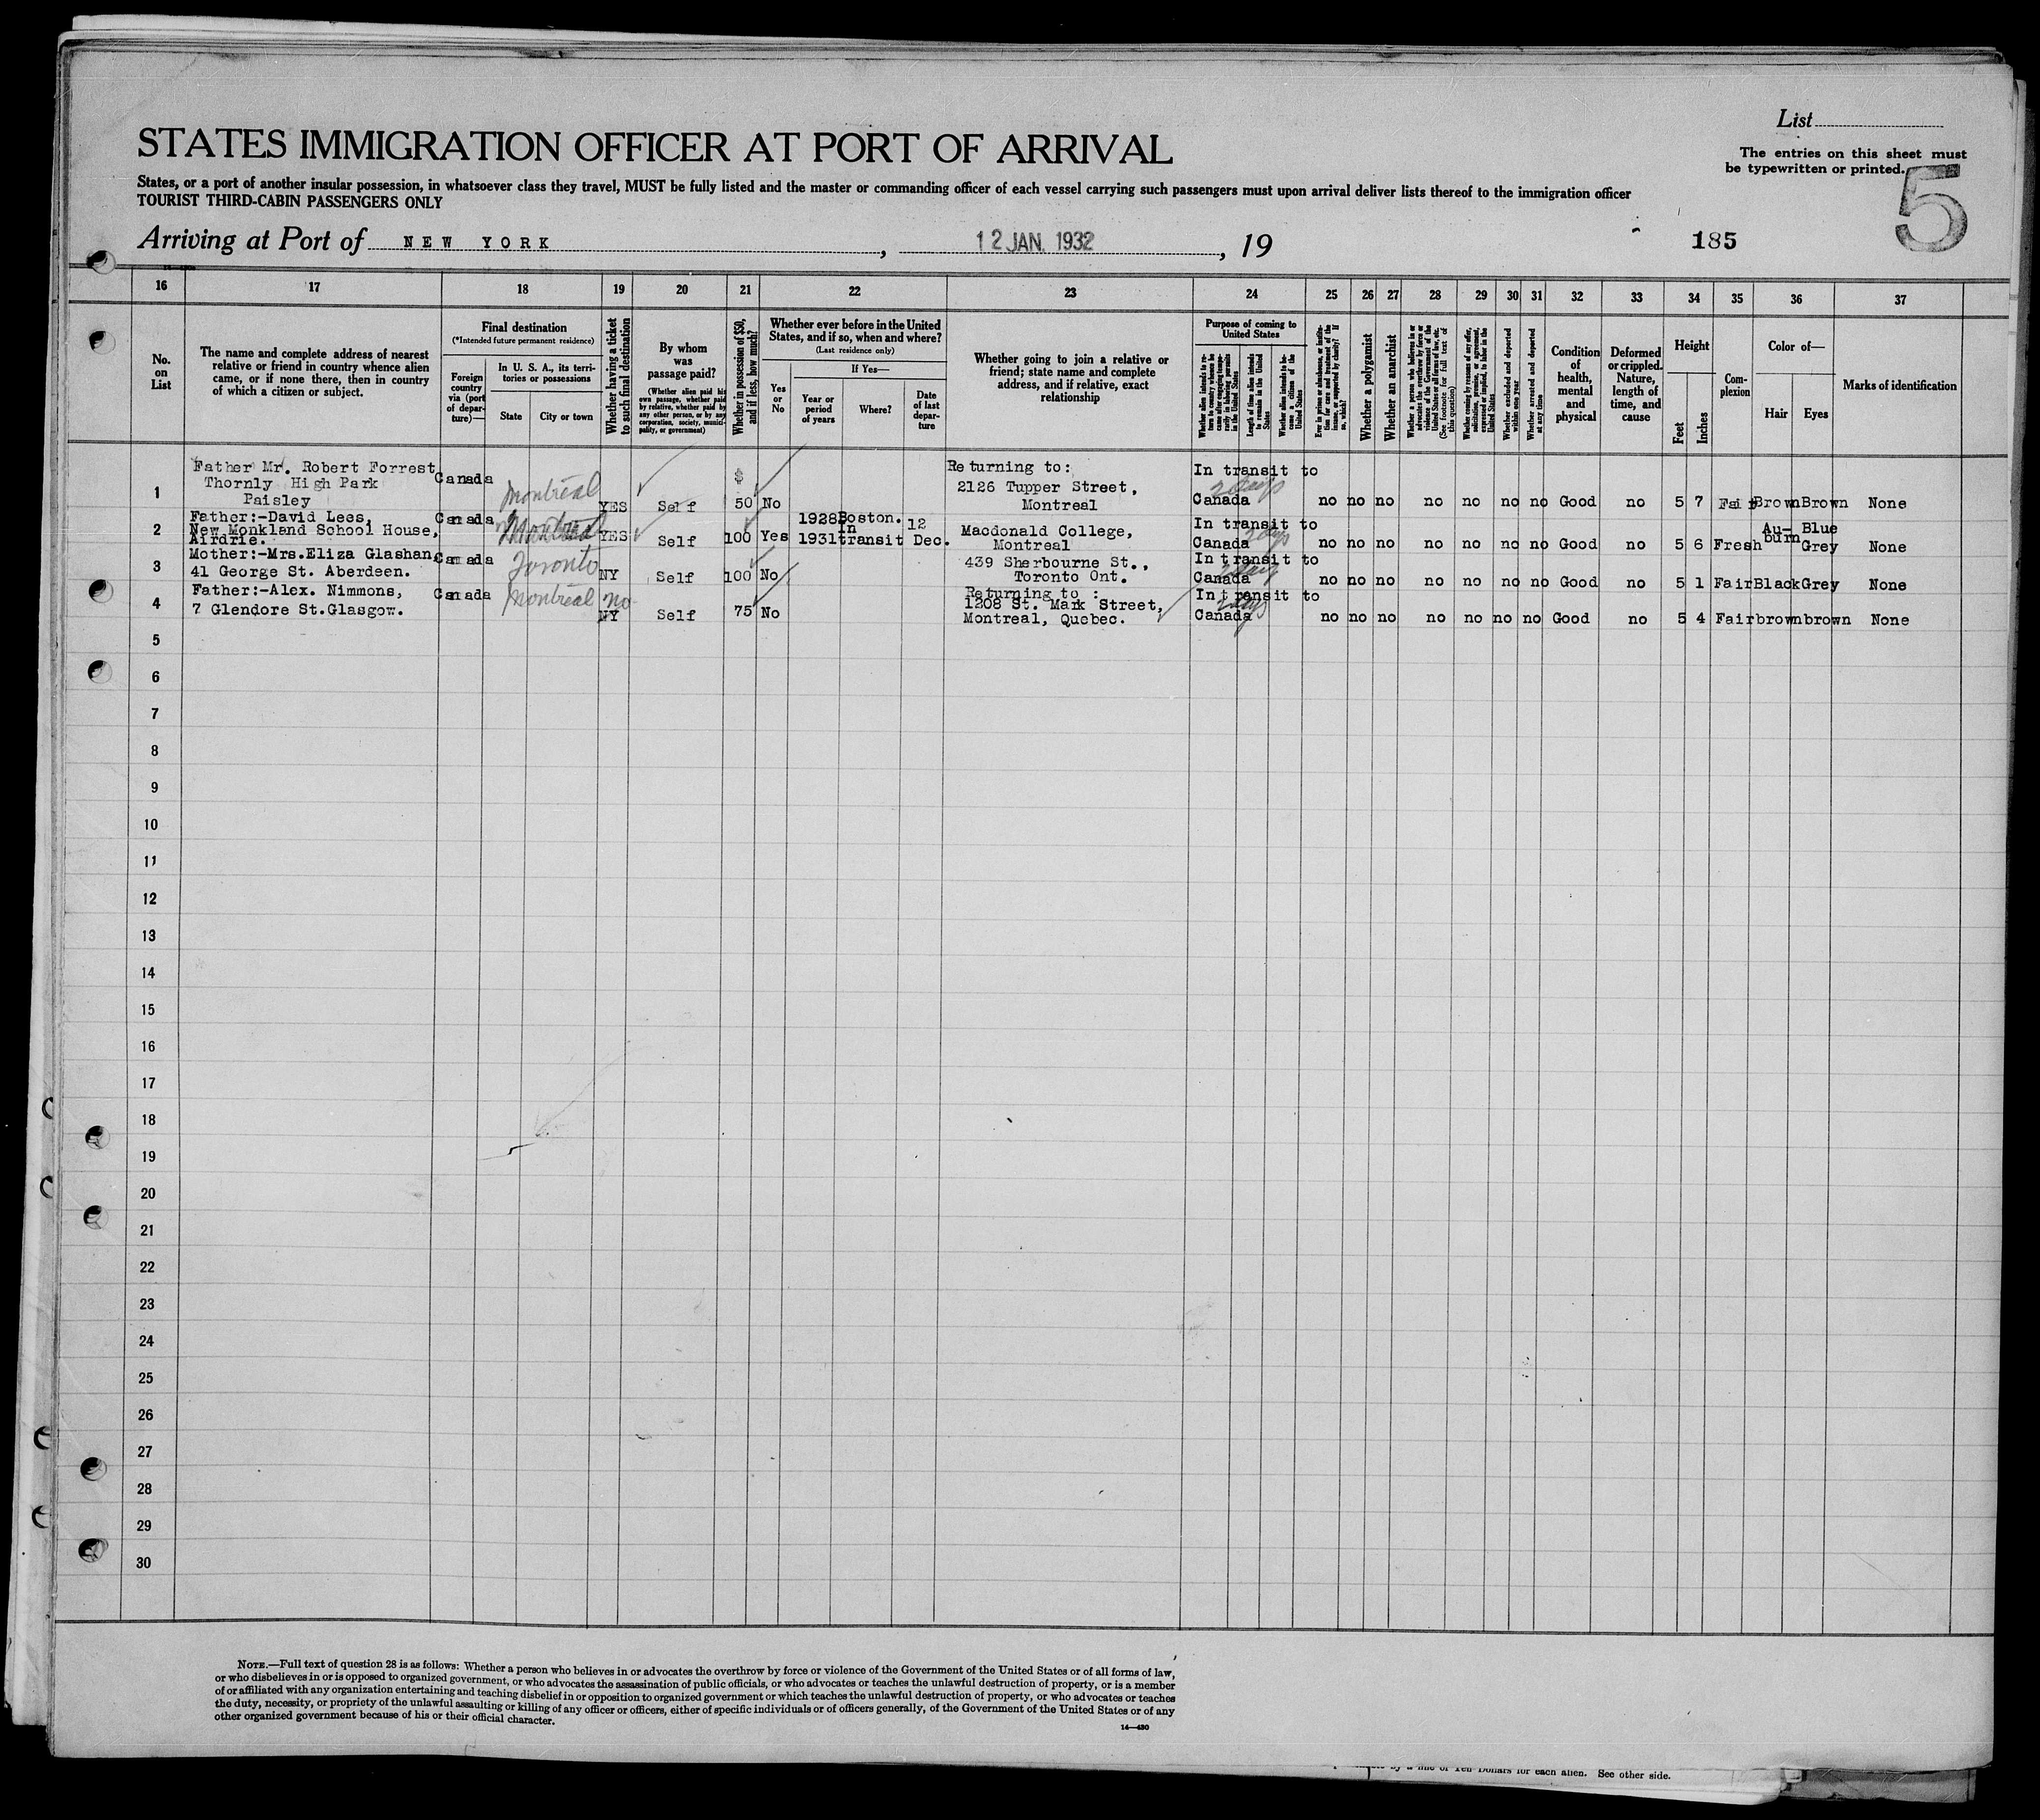 List
The entries on this sheet must
be typewritten or printed.
5
STATES IMMIGRATION OFFICER AT PORT OF ARRIVAL
States, or a port of another insular possession, in whatsoever class they travel, MUST be fully listed and the master or commanding officer of each vessel carrying such passengers must upon arrival deliver lists thereof to the immigration officer
TOURIST THIRD-CABIN PASSENGERS ONLY
Arriving at Port of NEW YORK, 12 JAN. 1932, 19 185
16 17 18 19 20 21 22 23 24 25 26 27 28 29 30 31 32 33 34 35 36 37
No. on List
The name and complete address of nearest
relative or friend in country whence alien
came, or if none there, then in country
of which a citizen or subject.
Final destination
(*Intended future permanent residence)
Foreign country via (port of departure)—
In U. S. A., its territories or possessions
State City or town
Whether having a ticket to such final destination
By whom was passage paid?
(Whether alien paid his own passage, whether paid by relative, whether paid by any other person, or by any corporation, society, municipality, or government)
Whether in possession of $50, and if less, how much?
Whether ever before in the United States, and if so, when and where?
(Last residence only)
Yes or No
If Yes—
Year or period of years
Where?
Date of last departure
Whether going to join a relative or
friend; state name and complete
address, and if relative, exact
relationship
Purpose of coming to United States
Whether alien intends to return to country whence he came after engaging temporarily in laboring pursuits in the United States
Length of time alien intends to remain in the United States
Whether alien intends to become a citizen of the United States
Ever in prison or almshouse, or institution for care and treatment of the insane, or supported by charity? If so, which?
Whether a polygamist
Whether an anarchist
Whether a person who believes in or advocates the overthrow by force or violence of the Government of the United States or all forms of law, etc. (See footnote for full text of this question)
Whether coming by reasons of any offer, solicitation, promise, or agreement, expressed or implied, to labor in the United States
Whether excluded and deported within one year
Whether arrested and deported at any time
Condition of health, mental and physical
Deformed or crippled. Nature, length of time, and cause
Height
Feet Inches
Complexion
Color of—
Hair Eyes
Marks of identification
1 Father Mr. Robert Forrest
Thornly High Park
Paisley
Canada Montreal YES Self $ 50 No
Returning to:
2126 Tupper Street,
Montreal
In transit to
Canada 2 days no no no no no no no Good no 5 7 Fair Brown Brown None
2 Father:-David Lees,
New Monkland School House,
Airdrie.
Canada Montreal YES Self 100 Yes 1928 1931 Boston. In transit 12 Dec.
Macdonald College,
Montreal
In transit to
Canada 2 days no no no no no no no Good no 5 6 Fresh Au-burn Blue Grey None
3 Mother:-Mrs.Eliza Glashan,
41 George St. Aberdeen.
Canada Toronto NY Self 100 No
439 Sherbourne St.,
Toronto Ont.
In transit to
Canada 2 days no no no no no no no Good no 5 1 Fair Black Grey None
4 Father:-Alex. Nimmons,
7 Glendore St.Glasgow.
Canada Montreal no NY Self 75 No
Returning to :
1208 St. Mark Street,
Montreal, Quebec.
In transit to
Canada 2 days no no no no no no no Good no 5 4 Fair brown brown None
5
6
7
8
9
10
11
12
13
14
15
16
17
18
19
20
21
22
23
24
25
26
27
28
29
30
NOTE.—Full text of question 28 is as follows: Whether a person who believes in or advocates the overthrow by force or violence of the Government of the United States or of all forms of law,
or who disbelieves in or is opposed to organized government, or who advocates the assassination of public officials, or who advocates or teaches the unlawful destruction of property, or is a member
of or affiliated with any organization entertaining and teaching disbelief in or opposition to organized government or which teaches the unlawful destruction of property, or who advocates or teaches
the duty, necessity, or propriety of the unlawful assaulting or killing of any officer or officers, either of specific individuals or of officers generally, of the Government of the United States or of any
other organized government because of his or their official character.
14—430
Dollars for each alien. See other side.